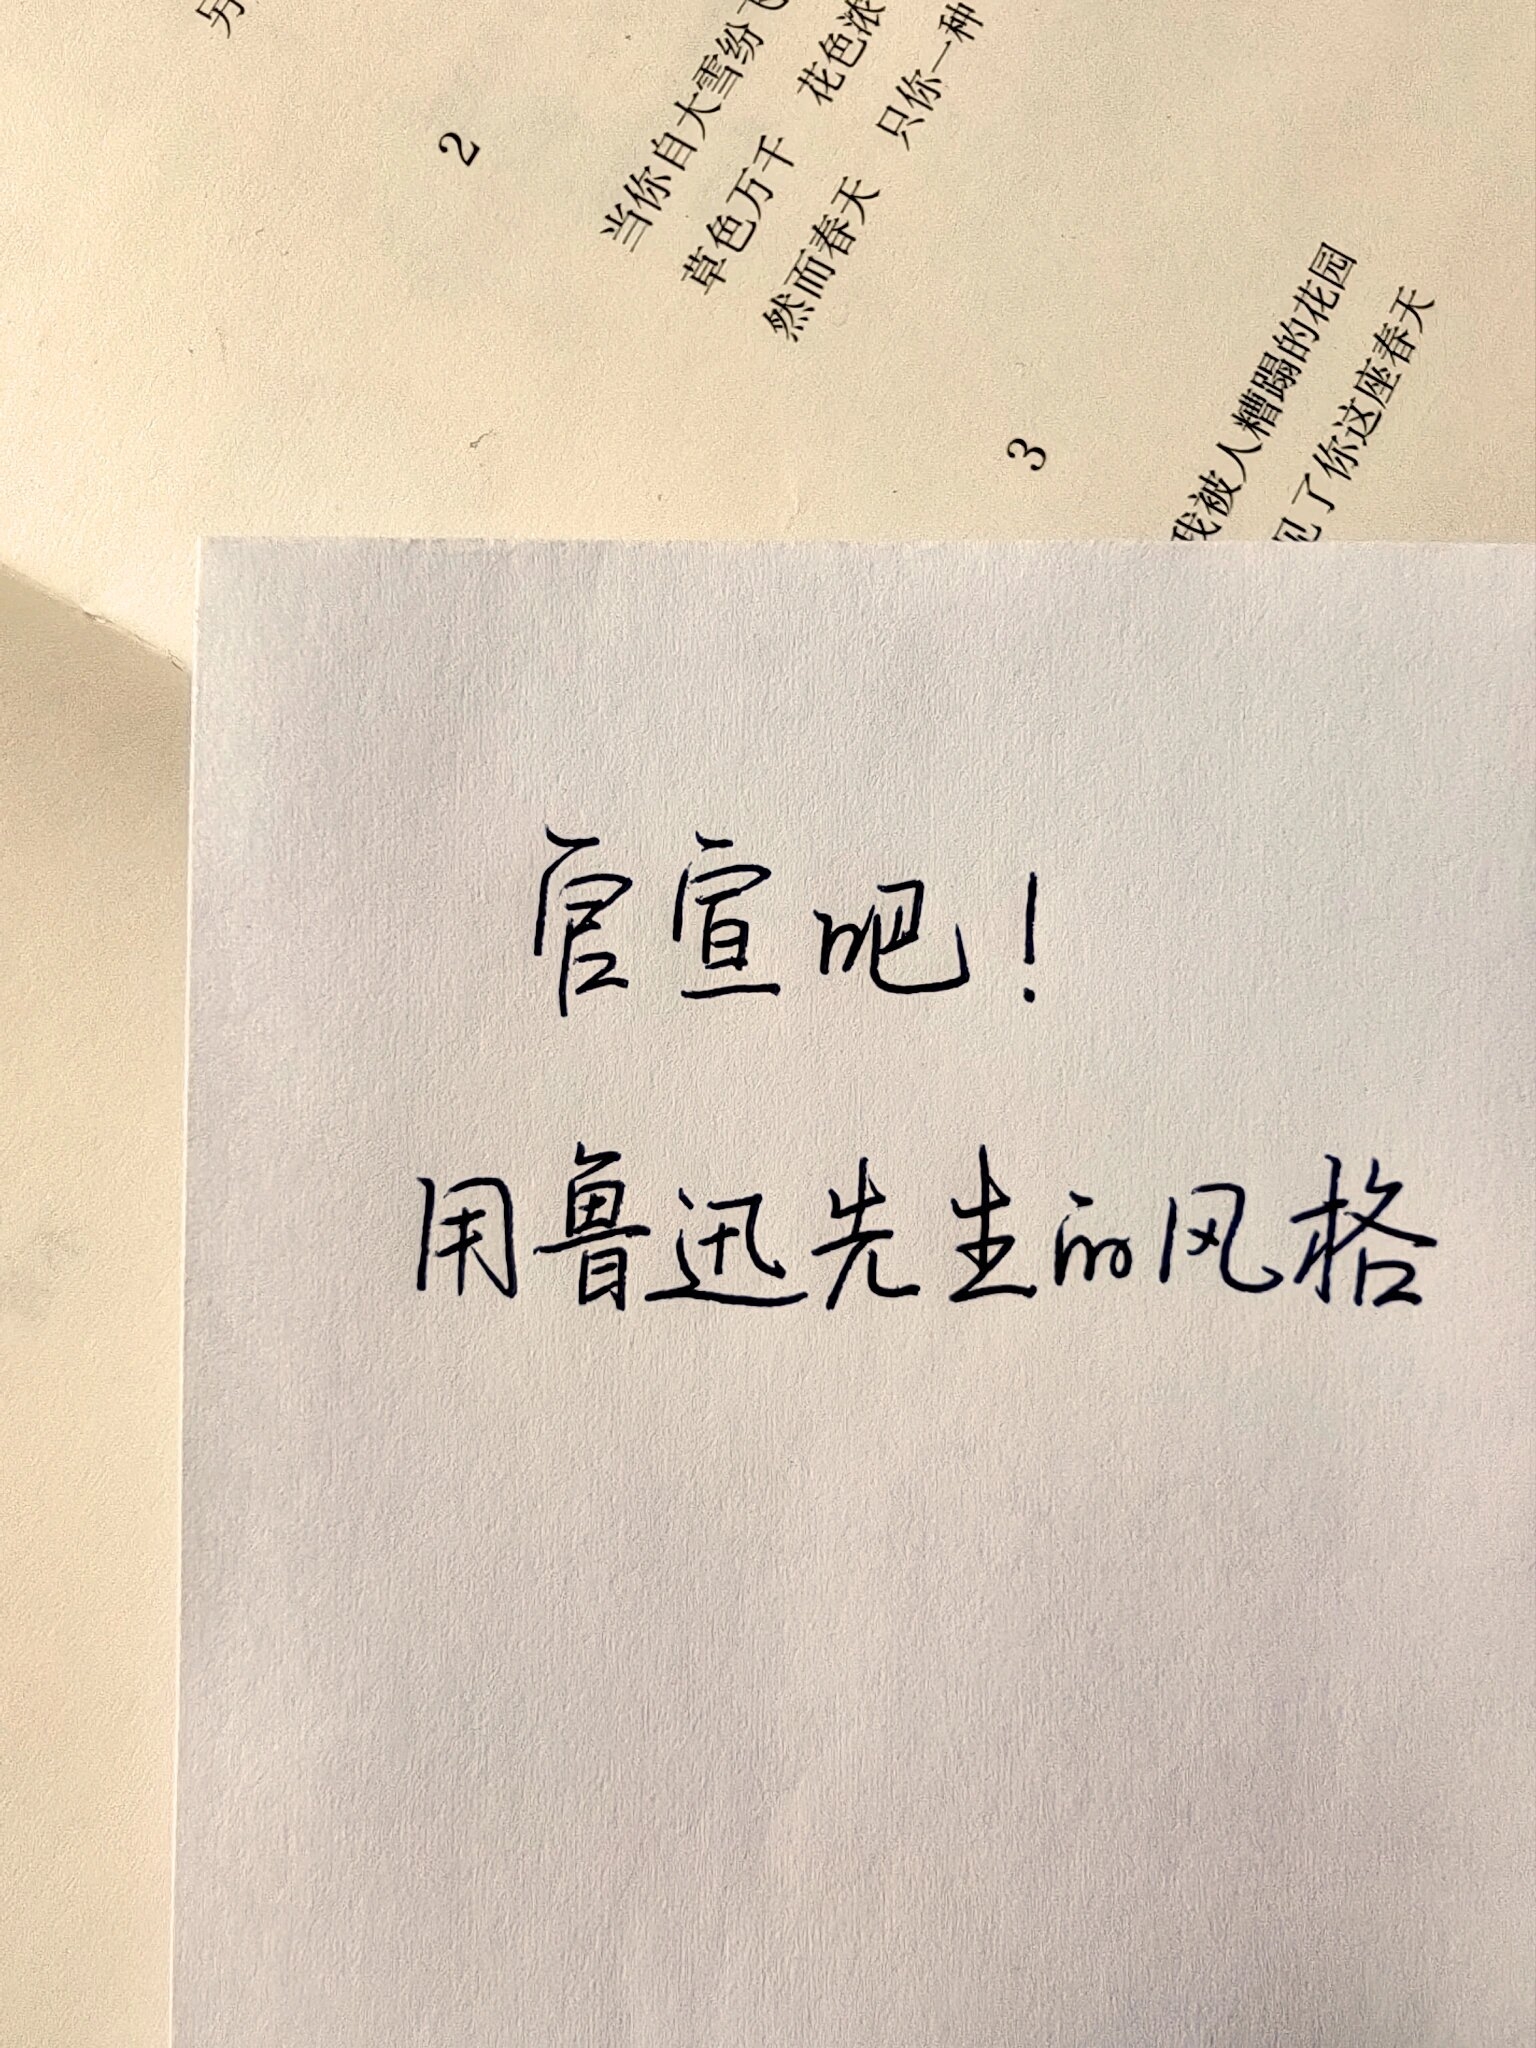 2
当你自大雪纷
草色万千 花色浓
然而春天 只你一种
3
我被人糟蹋的花园
见了你这座春天
官宣吧！
用鲁迅先生的风格